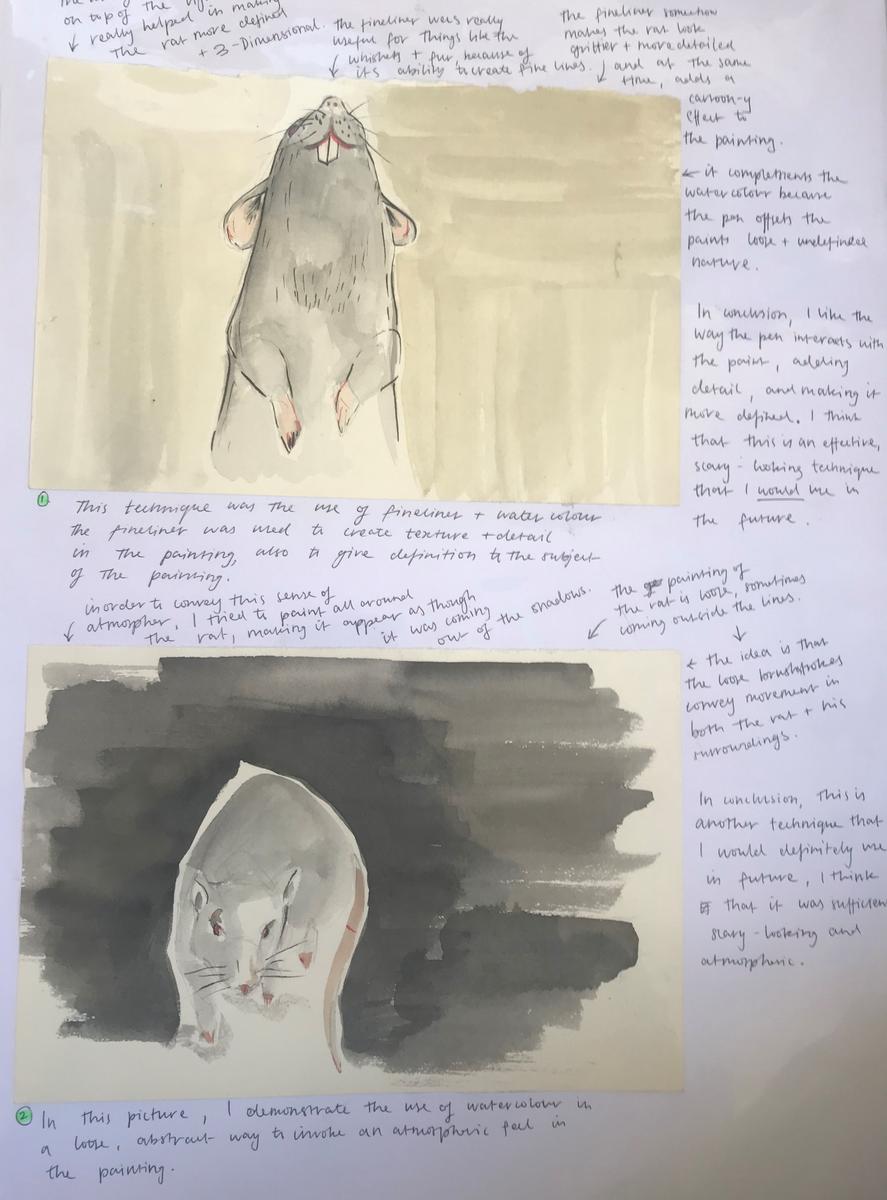 on top of the
really helped in making
the rat more defined
+ 3-Dimensional.
the fineliner was really
useful for things like the
whiskers + fur, because of
its ability to create fine lines.
the fineliner somehow
makes the rat look
grittier + more detailed
and at the same
time, adds a
cartoon-y
effect to
the painting.
← it complements the
watercolour because
the pen offsets the
paints loose + undefined
nature.
In conclusion, I like the
way the pen interacts with
the paint, adding
detail, and making it
more defined. I think
that this is an effective,
scary-looking technique
that I would use in
the future.
1 This technique was the use of fineliner + watercolour
the fineliner was used to create texture + detail
in the painting, also to give definition to the subject
of the painting.
in order to convey this sense of
atmospher, I tried to paint all around
the rat, making it appear as though
it was coming
out of the shadows.
the painting of
the rat is loose, sometimes
coming outside the lines.
← the idea is that
the loose brushstrokes
convey movement in
both the rat + his
surroundings.
In conclusion, this is
another technique that
I would definitely use
in future, I think
that it was sufficien
scary-looking and
atmospheric.
2 In this picture, I demonstrate the use of watercolour in
a loose, abstract way to invoke an atmospheric feel in
the painting.